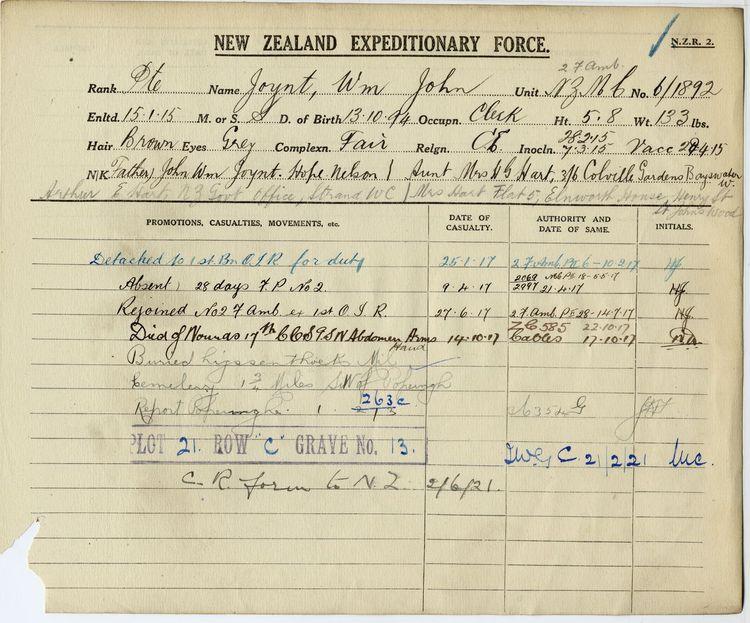 NEW ZEALAND EXPEDITIONARY FORCE.
N.Z.R. 2.
27 Amb.
Rank Pte Name Joynt, Wm John Unit N Z M C No. 6/1892
Enltd. 15.1.15 M. or S. S D. of Birth 13.10.94 Occupn. Clerk Ht. 5.8 Wt. 133 lbs.
Hair Brown Eyes Grey Complexn. Fair Reign. CE Inocln. 28.2.15 7.3.15 Vacc 4.15
N/K Father, John Wm Joynt. Hope Nelson | Aunt Mrs H G Hart. 3/6 Colville Gardens Bayswater W.
Arthur E Hart. N Z Govt Office, Strand W C / Mrs Hart Flat 5, Elnworth House, Henry St St Johns Wood
PROMOTIONS, CASUALTIES, MOVEMENTS, etc.
DATE OF CASUALTY.
AUTHORITY AND DATE OF SAME.
INITIALS.
Detached to 1st Bn O I R for duty 25.1.17 27 Amb. PE 6-10.2.17
Absent, 28 days F. P. No 2. 9.4.17 2069 18-5.17 2997 21.4.17
Rejoined No 2 F Amb. ex 1st O. I. R. 27.6.17 27. Amb. PE 28-14.7.17
Died of Wounds 17th C C S G S W Abdomen Arms Hand 14.10.17 585 22.10.17 Cables 17.10.17
Buried Lijssenthoek Mil
Cemetery 1 3/4 Miles SW of Poperingh
Report Poperinghe. 1 263c
PLOT 21. ROW "C" GRAVE No. 13.
I.W.G.C. 21/2/21
C. R. form to N. Z. 2/6/21.